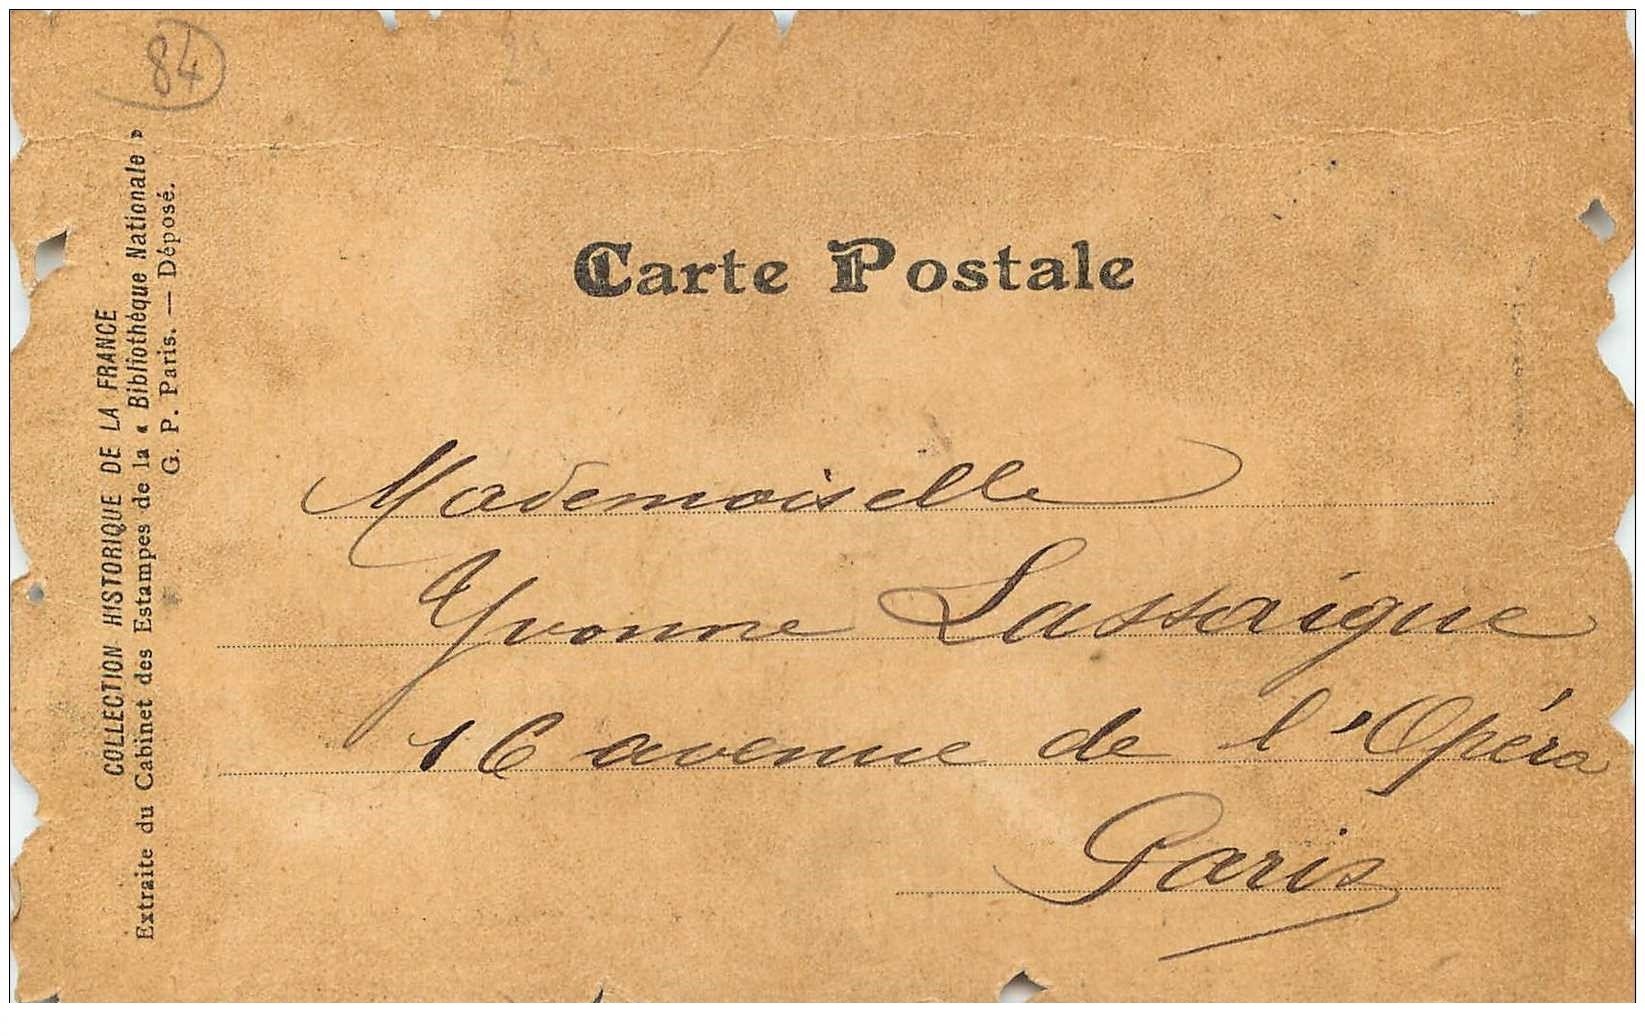 84
COLLECTION HISTORIQUE DE LA FRANCE
Extraite du Cabinet des Estampes de la « Bibliothèque Nationale »
G. P. Paris. — Déposé.
Carte Postale
Mademoiselle
Yvonne Lassaigue
16 avenue de l'Opéra
Paris